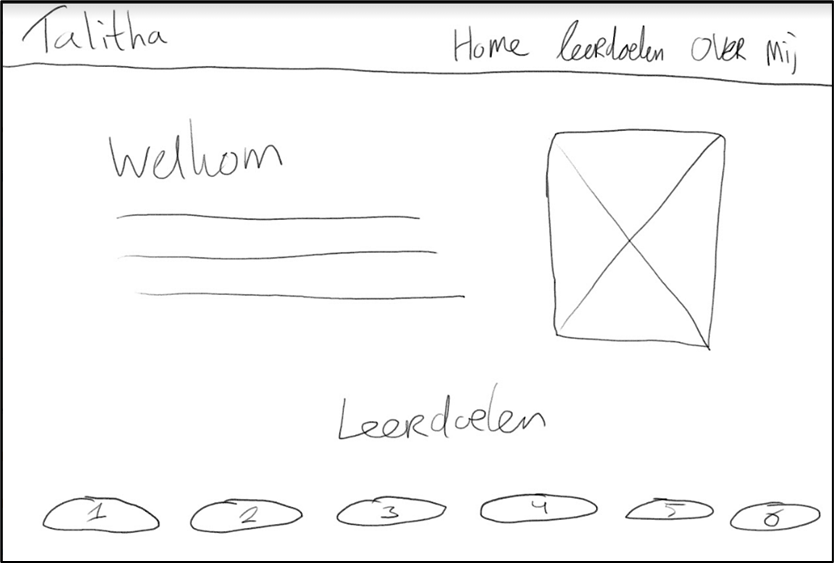 Talitha
Home leerdoelen over mij
Welkom
Leerdoelen
1 2 3 4 5 6